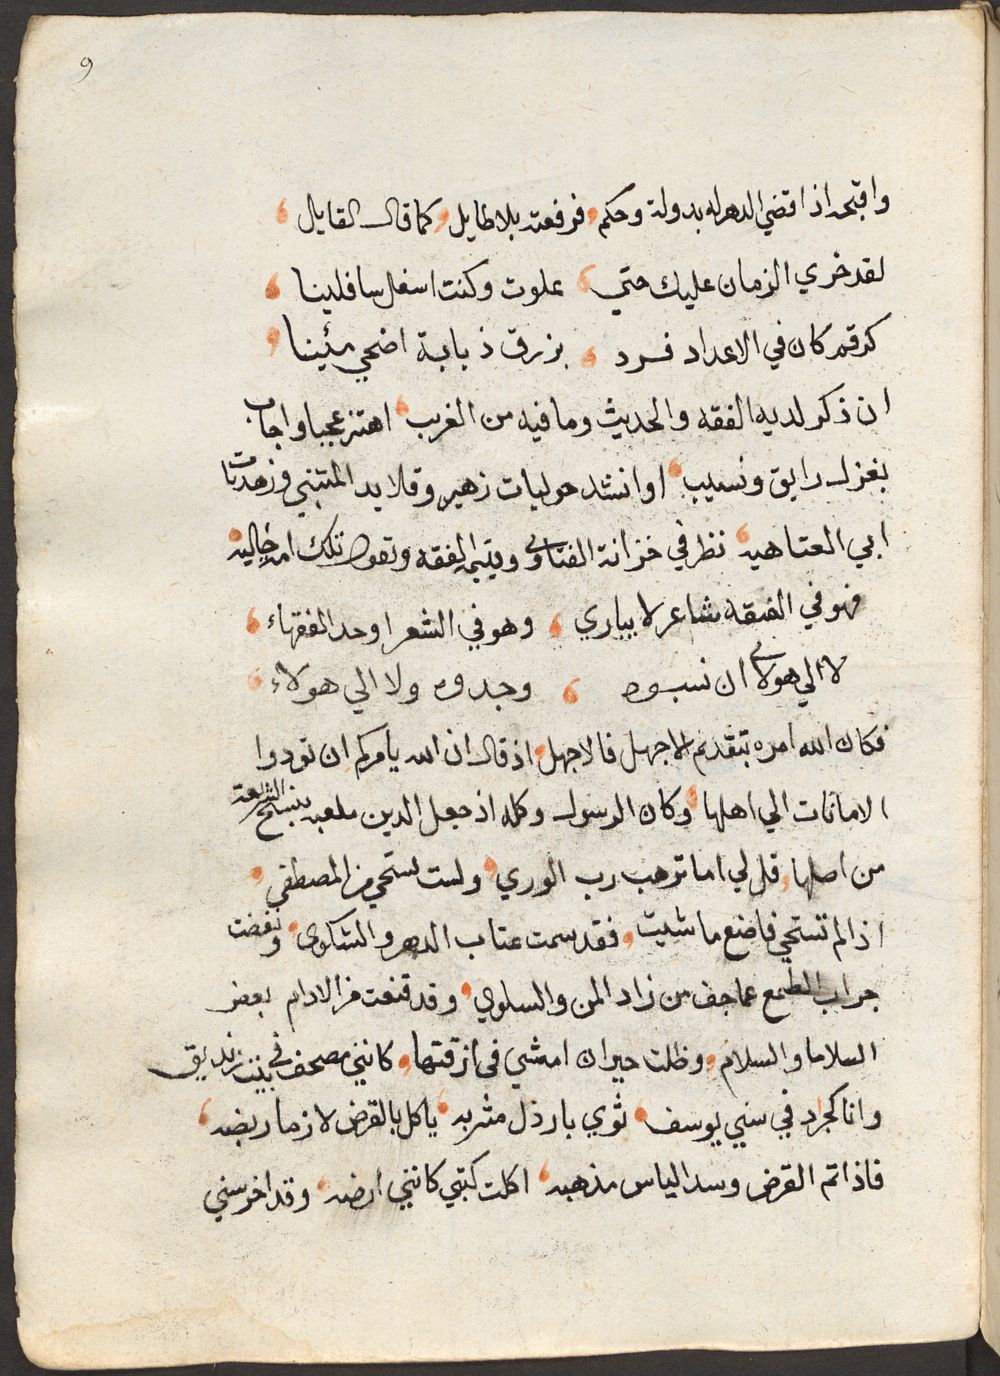 9
واقبحه اذا قضي الدهر له بدولة وحكم، فرفعته بلا طايل، وكما قال القايل،
لقد خري الزمان عليك حتي، علوت وكنت اسفل سافلينا،
كرقم كان في الاعداد فرد، بزرق ذبابة اضحي مئينا،
ان ذكر لديه الفقه والحديث وما فيه من الغريب، اهتز عجبا واجاب
بغزل رايق ونسيب، او انشد حوليات زهير وقلايد المتنبي وزهديات
ابي العتاهيه، نظر في خزانة الفتاوي ويتيمة الفقه وتقول تلك امة خاليه،
فهو في الفقه شاعر لا يباري، وهو في الشعر اوحد الفقهاء،
لا الي هولاء ان نسبوه، وجدوه ولا الي هولاء،
فكان الله امره بتقديم الاجهل فالاجهل، اذ قال ان الله يامركم ان تودوا
الامانات الي اهلها، وكان الرسول وكله اذ جعل الدين ملعبه بنسخ الشريعة
من اصلها، قل لي اما ترهب رب الوري، ولست تستحي من المصطفي،
اذا لم تستحي فاصنع ما شيت، فقد سمت عتاب الدهر والشكوي، ونفضت
جراب الطمع مما جف من زاد المن والسلوي، وقد قنعت من الادام بعض
السلاما والسلام، وظلت حيران امشي في ازقتها، كانني مصحف في بيت زنديق
وانا كجراد في سني يوسف، ثوي بارذل مثربه، ياكل بالقرض لازما ربضه،
فاذا تم القرض وسد الياس مذهبه، اكلت كتبي كانني ارضه، وقد اخرسني